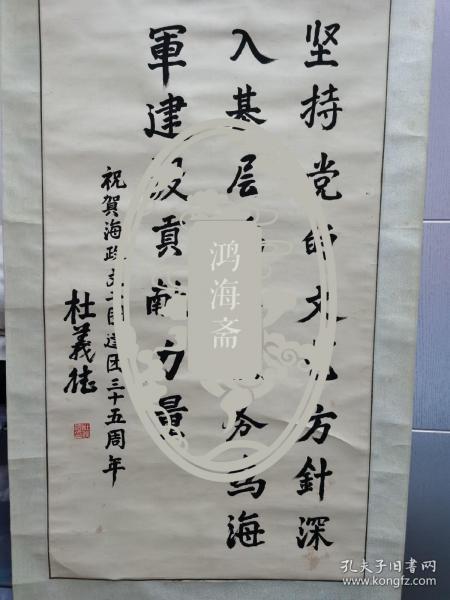 坚持党的文艺方針深
入基层务为海
軍建设貢献力量
祝賀海政文工团建团三十五周年
杜義德
鸿海斋
孔夫子旧书网
www.kongfz.com